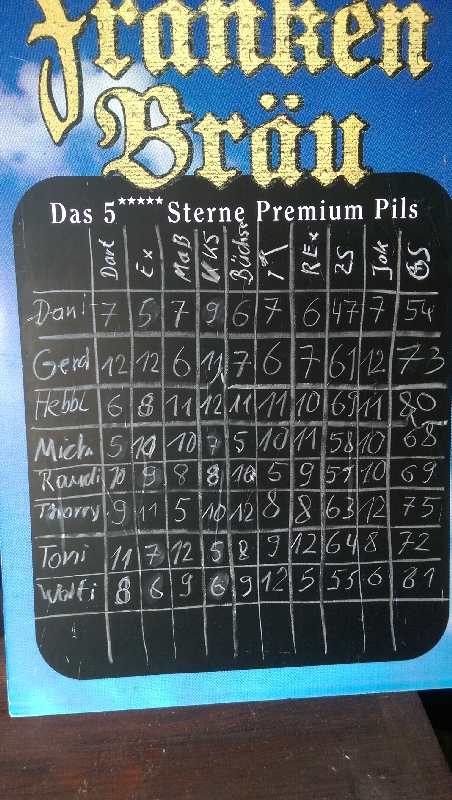 Franken
Bräu
Das 5***** Sterne Premium Pils
Dart Ex MaB KKS Büchse REx ZS Jok GS
Dani 7 5 7 9 6 7 6 47 7 54
Gerd 12 12 6 11 7 6 7 61 12 73
Hebbl 6 8 11 12 11 11 10 69 11 80
Mich. 5 10 10 7 5 10 11 58 10 68
Raudi 10 9 8 8 10 5 9 59 10 69
Thorry 9 11 5 10 12 8 8 63 12 75
Toni 11 7 12 5 8 9 12 64 8 72
Wolfi 8 6 9 6 9 12 5 55 6 61